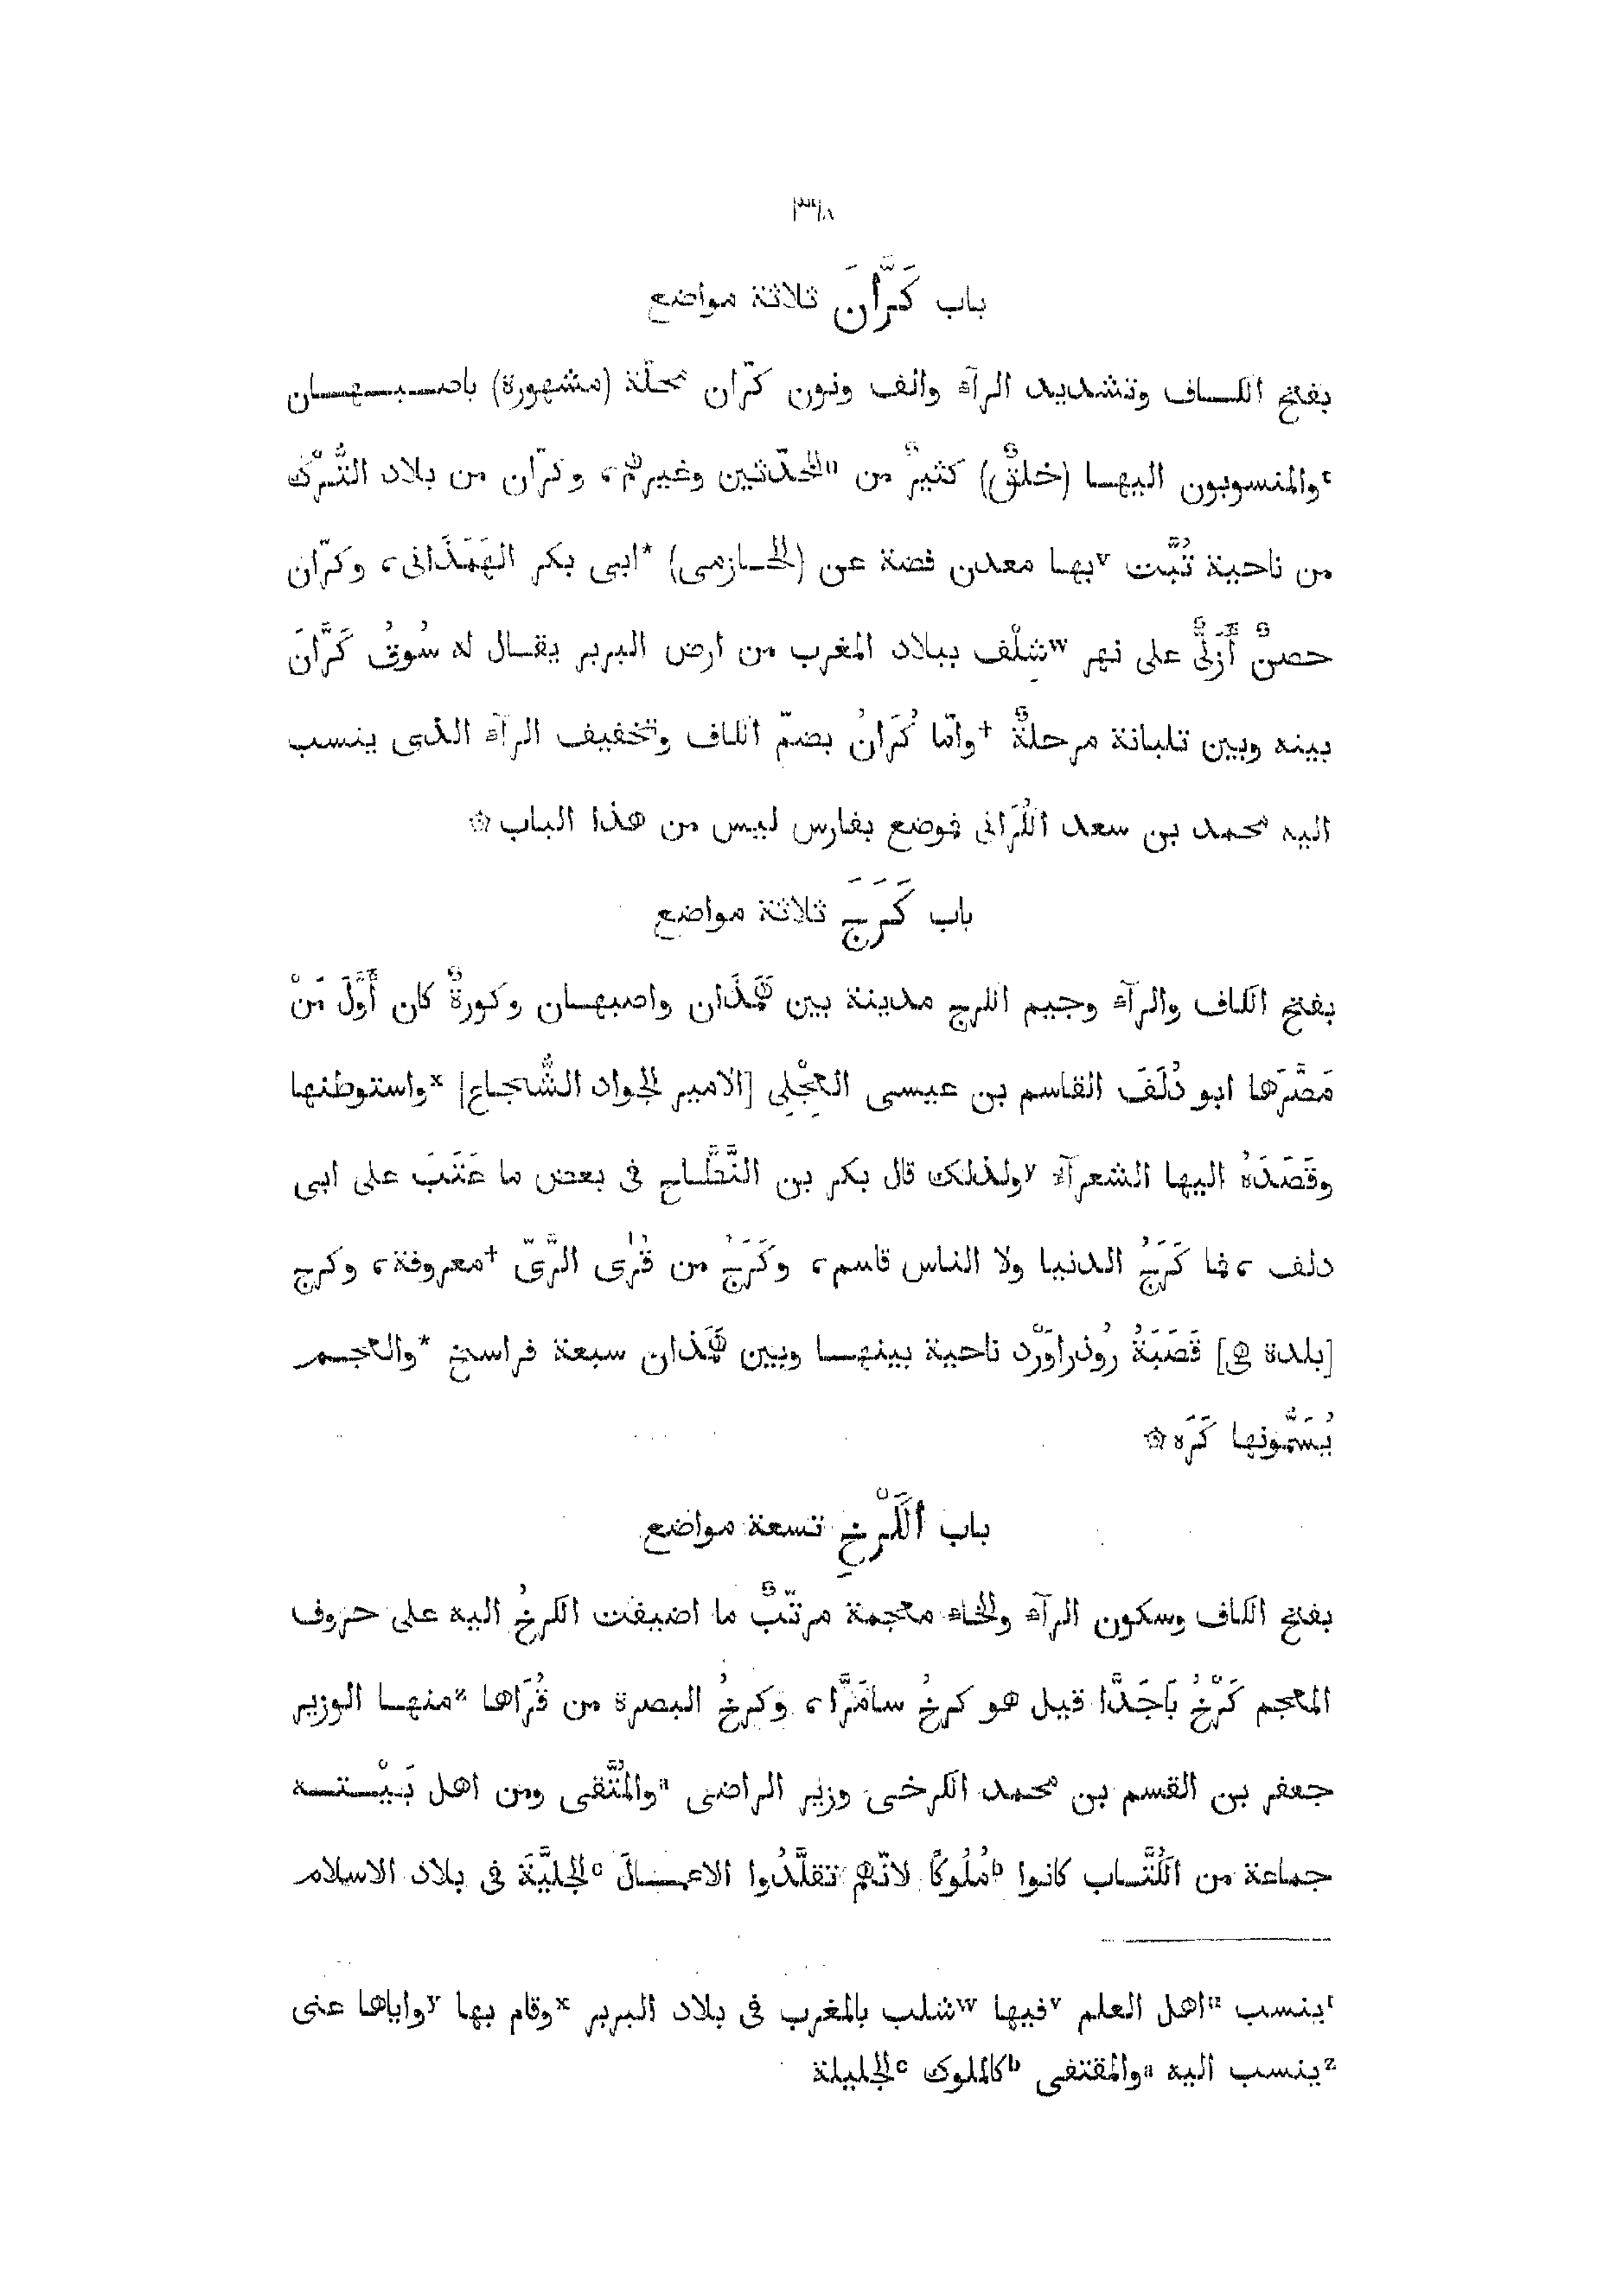 ٣٦٨
باب كَرَّانَ ثلاثة مواضع
بفتح الكاف وتشديد الرآء والف ونون كرّان محلّة (مشهورة) باصبهان
tوالمنسوبون اليها (خلقٌ) كثيرٌ من uالمحدّثين وغيرهم، وكرّان من بلاد التُّرْك
من ناحية تُبَّت vبها معدن فضة عن (الحازمى) *ابى بكر الهَمَذَانى، وكرّان
حصنٌ أَزَلىٌّ على نهر wشِلْف ببلاد المغرب من ارض البربر يقال له سُوقُ كَرَّانَ
بينه وبين تلبانة مرحلةٌ +وامّا كُرَانُ بضمّ الكاف وتخفيف الرآء الذى ينسب
اليه محمد بن سعد الكُرَانى فوضع بفارس ليس من هذا الباب ۞
باب كَرَجَ ثلاثة مواضع
بفتح الكاف والرآء وجيم الكرج مدينة بين هَمَذَان واصبهان وكورةٌ كان أَوَّلَ مَنْ
مَصَّرَها ابو دُلَفَ القاسم بن عيسى العِجْلِى [الامير الجواد الشُّجاع] xواستوطنها
وقَصَدَهُ اليها الشعرآء yولذلك قال بكر بن النَّطَّاح فى بعض ما عَتَبَ على ابى
دلف ، فما كَرَجُ الدنيا ولا الناس قاسم، وكَرَجُ من قُرَى الرَّىّ +معروفة، وكرج
[بلدة هى] قَصَبَةُ رُوذراوَرْد ناحية بينها وبين هَمَذان سبعة فراسخ *والعجم
يُسَمُّونها كَرَه ۞
باب الكَرْخِ تسعة مواضع
بفتح الكاف وسكون الرآء والخاء معجمة مرتّبٌ ما اضيفت الكرخُ اليه على حروف
المعجم كَرْخُ بَاجَدَّا قيل هو كرخُ سامَرَّا، وكرخُ البصرة من قُرَاها zمنها الوزير
جعفر بن القسم بن محمد الكرخى وزير الراضى aوالمُتَّقى ومن اهل بَيْته
جماعة من الكُتَّاب كانوا bمُلُوكًا لانّهم تقلَّدُوا الاعمالَ cالجليَّةَ فى بلاد الاسلام
tينسب uاهل العلم vفيها wشلب بالمغرب فى بلاد البربر xوقام بها yواياها عنى
zينسب اليه aوالمقتفى bكالملوك cالجليلة